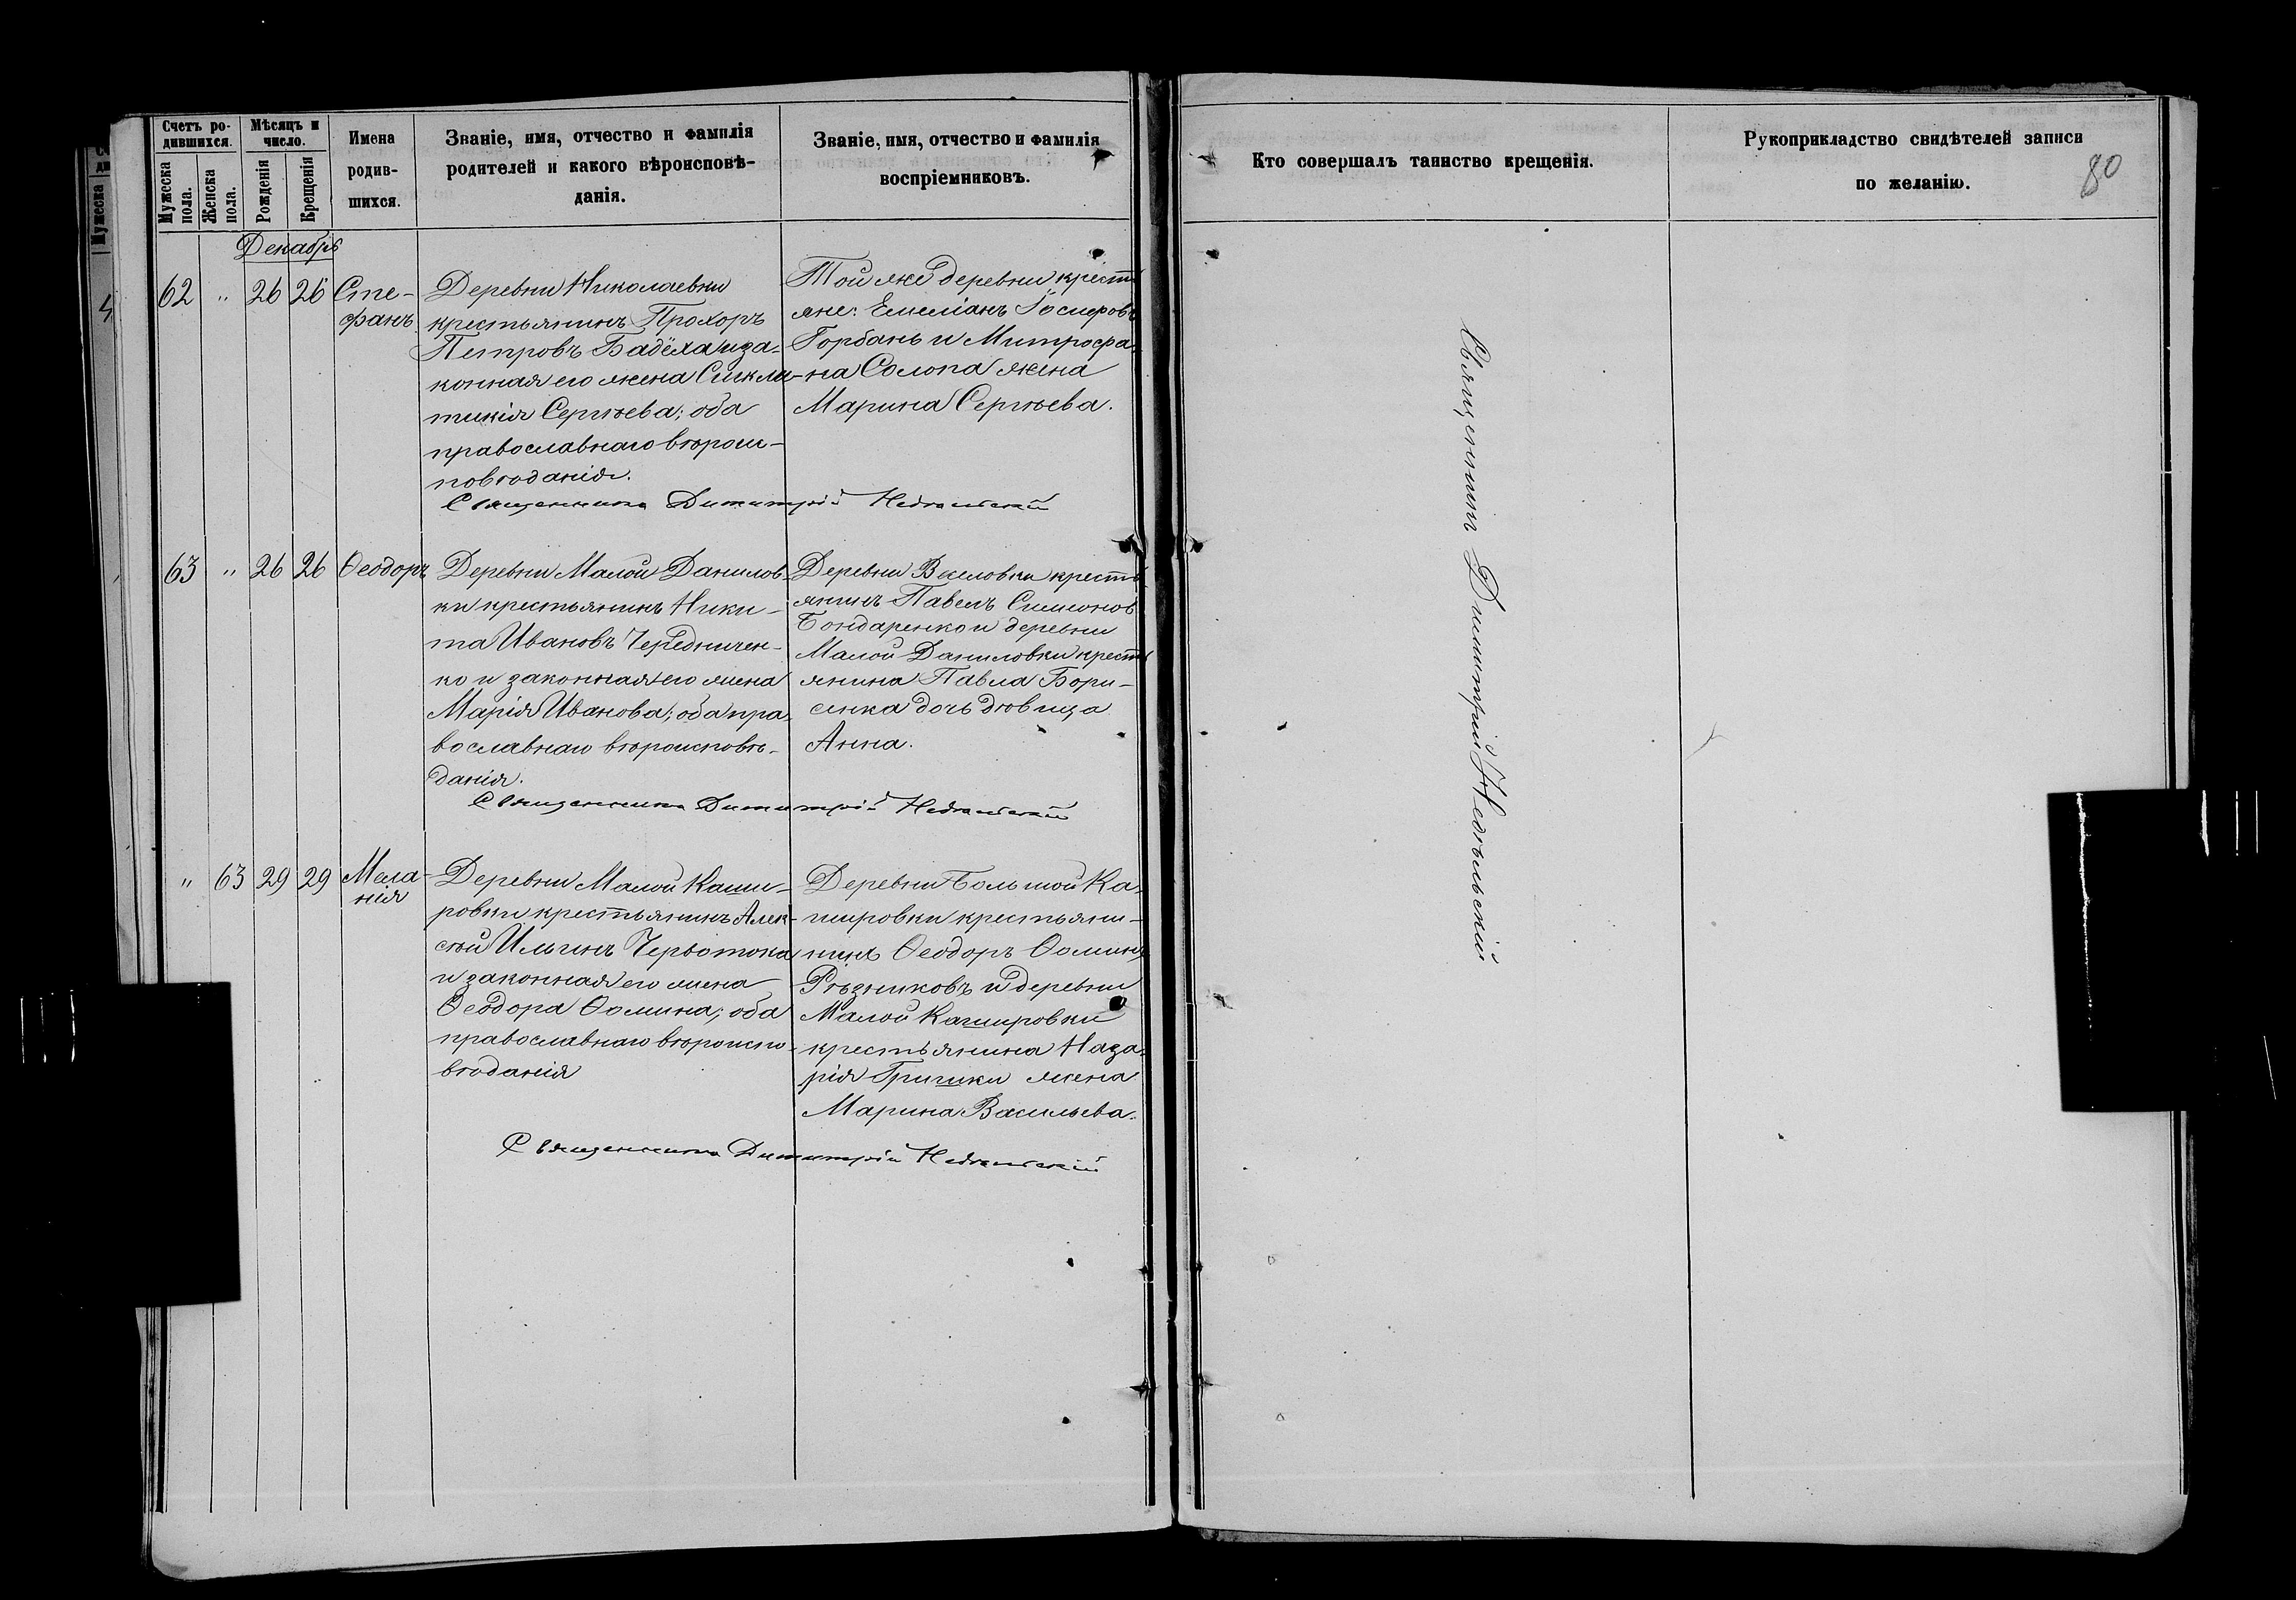 Счетъ ро-
дившихся.
Мужеска
пола.
Женска
пола.
Мѣсяцъ и
число.
Рожденія
Крещенія
Имена
родив-
шихся.
Званіе, имя, отчество и фамилія
родителей и какого вѣроисповѣ-
данія.
Званіе, имя, отчество и фамилія
воспріемниковъ.
Кто совершалъ таинство крещенія.
Рукоприкладство свидѣтелей записи
по желанію.
80
Декабрь
62 " 26 26 Сте-
фанъ
Деревни Николаевки
крестьянинъ Прохоръ
Петровъ Бадёха и за-
конная его жена Синкли-
тикія Сергѣева; оба
православнаго вѣроис-
повѣданія.
Той же деревни кресть
яне: Емеліанъ Іосифовъ
Горбань и Митрофа-
на Солопа жена
Марина Сергѣева.
Священникъ Димитрій Недѣльскій
63 " 26 26 Ѳеодоръ
Деревни Малой Данилов-
ки крестьянинъ Ники-
та Ивановъ Чередничен-
ко и законная его жена
Марія Иванова; оба пра-
вославнаго вѣроисповѣ-
данія.
Деревни Веселовки кресть
янинъ Павелъ Симеоновъ
Бондаренко и деревни
Малой Даниловки кресть
янина Павла Бори-
сенка дочь дѣвица
Анна.
Священникъ Димитрій Недѣльскій
" 63 29 29 Мела-
нія
Деревни Малой Каши-
ровки крестьянинъ Алек-
сѣй Ильинъ Червотока
и законная его жена
Ѳеодора Ѳомина; оба
православнаго вѣроиспо-
вѣданія
Деревни Большой Ка-
шировки крестьяни-
нинъ Ѳеодоръ Ѳоминъ
Рѣзниковъ и деревни
Малой Кашировки
крестьянина Наза-
рія Гришки жена
Марина Васильева.
Священникъ Димитрій Недѣльскій
Священникъ Димитрій Недѣльскій